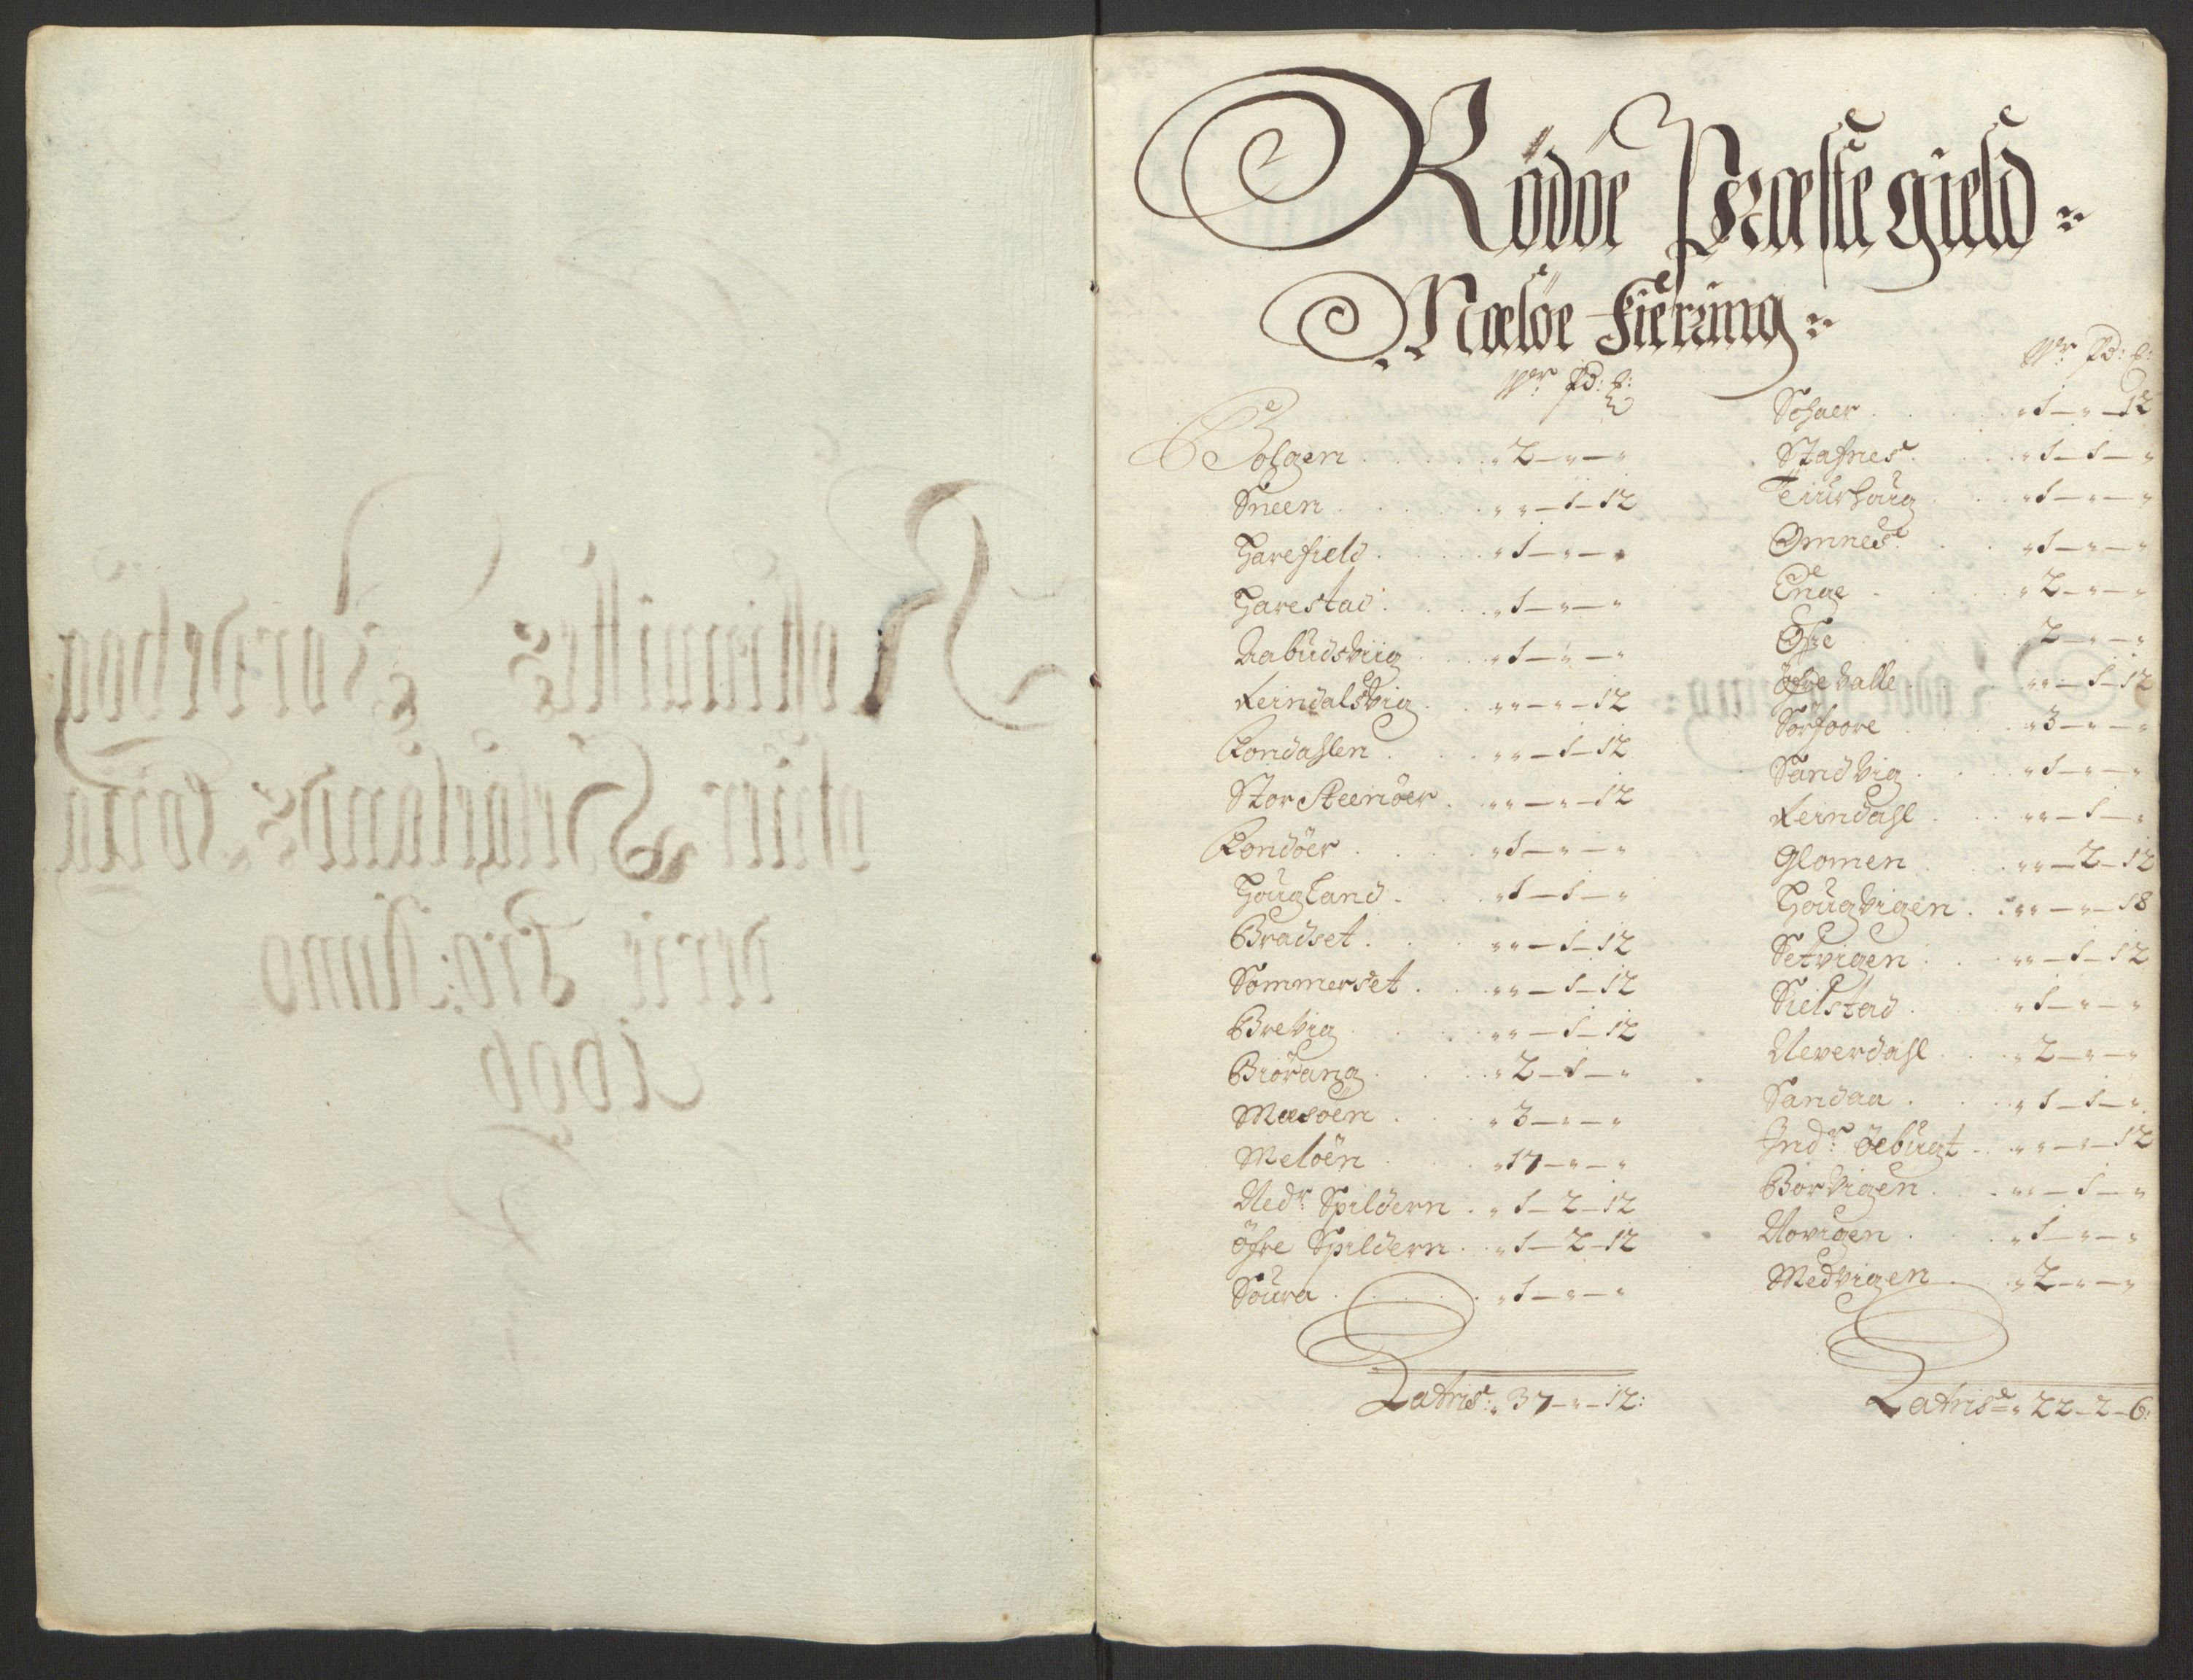 Rödöe Præstegield
Meløe Fierring
Wr Pd: ℔:
Bolgen . . . . . „ 2 — „ — „
Sneen . . . . „ „ — 1 — 12
Harefield . . . . „ 1 — „ — „
Harestad . . . . „ 1 — „ — „
Aabudsviig . . . „ 1 — „ — „
Reindalsvig . . „ „ — „ — 12
Rondahlen . . . „ „ — 1 — 12
Stor Steenöer . „ „ — „ — 12
Rondöer . . . . „ 1 — „ — „
Hougland . . . „ 1 — 1 — „
Bradset . . . „ „ — 1 — 12
Sommerset . . „ „ — 1 — 12
Brevig . . . . „ „ — 1 — 12
Biörang . . . . „ 2 — 1 — „
Mæsøen . . . . „ 3 — „ — „
Meløen . . . „ 17 — „ — „
Nedr Spildern . „ 1 — 2 — 12
Öfre Spildern . . „ 1 — 2 — 12
Soura . . . . . „ 1 — „ — „
Latris: „ 37 — „ — 12:
Wr Pd: ℔:
Schaer . . . . „ 1 — „ — 12
Stafnes . . . „ 1 — 1 — „
Teiurhoug . . . „ 1 — „ — „
Omnes . . . „ 1 — „ — „
Enge . . . . „ 2 — „ — „
. . . . 2 — „ — „
Öfre Valle . . . „ „ — 1 — 12
Sörfoore . . . „ 3 — „ — „
Sandvig . . . . „ 1 — „ — „
Reindahl . . . „ „ — 1 — „
Glomen . . . „ „ — 2 — 12
Hougvigen . . „ „ — „ — 18
Setvigen . . . „ „ — 1 — 12
Sielstad . . . „ 1 — „ — „
Neverdahl . . . „ 2 — „ — „
Sandaa . . . . „ 1 — 1 — „
Indr öebugt . . „ „ — „ — 12
Börvigen . . . „ „ — 1 — „
Novigen . . . „ 1 — „ — „
Medvigen . . . „ 2 — „ — „
Latris „ 22 — 2 — 6: